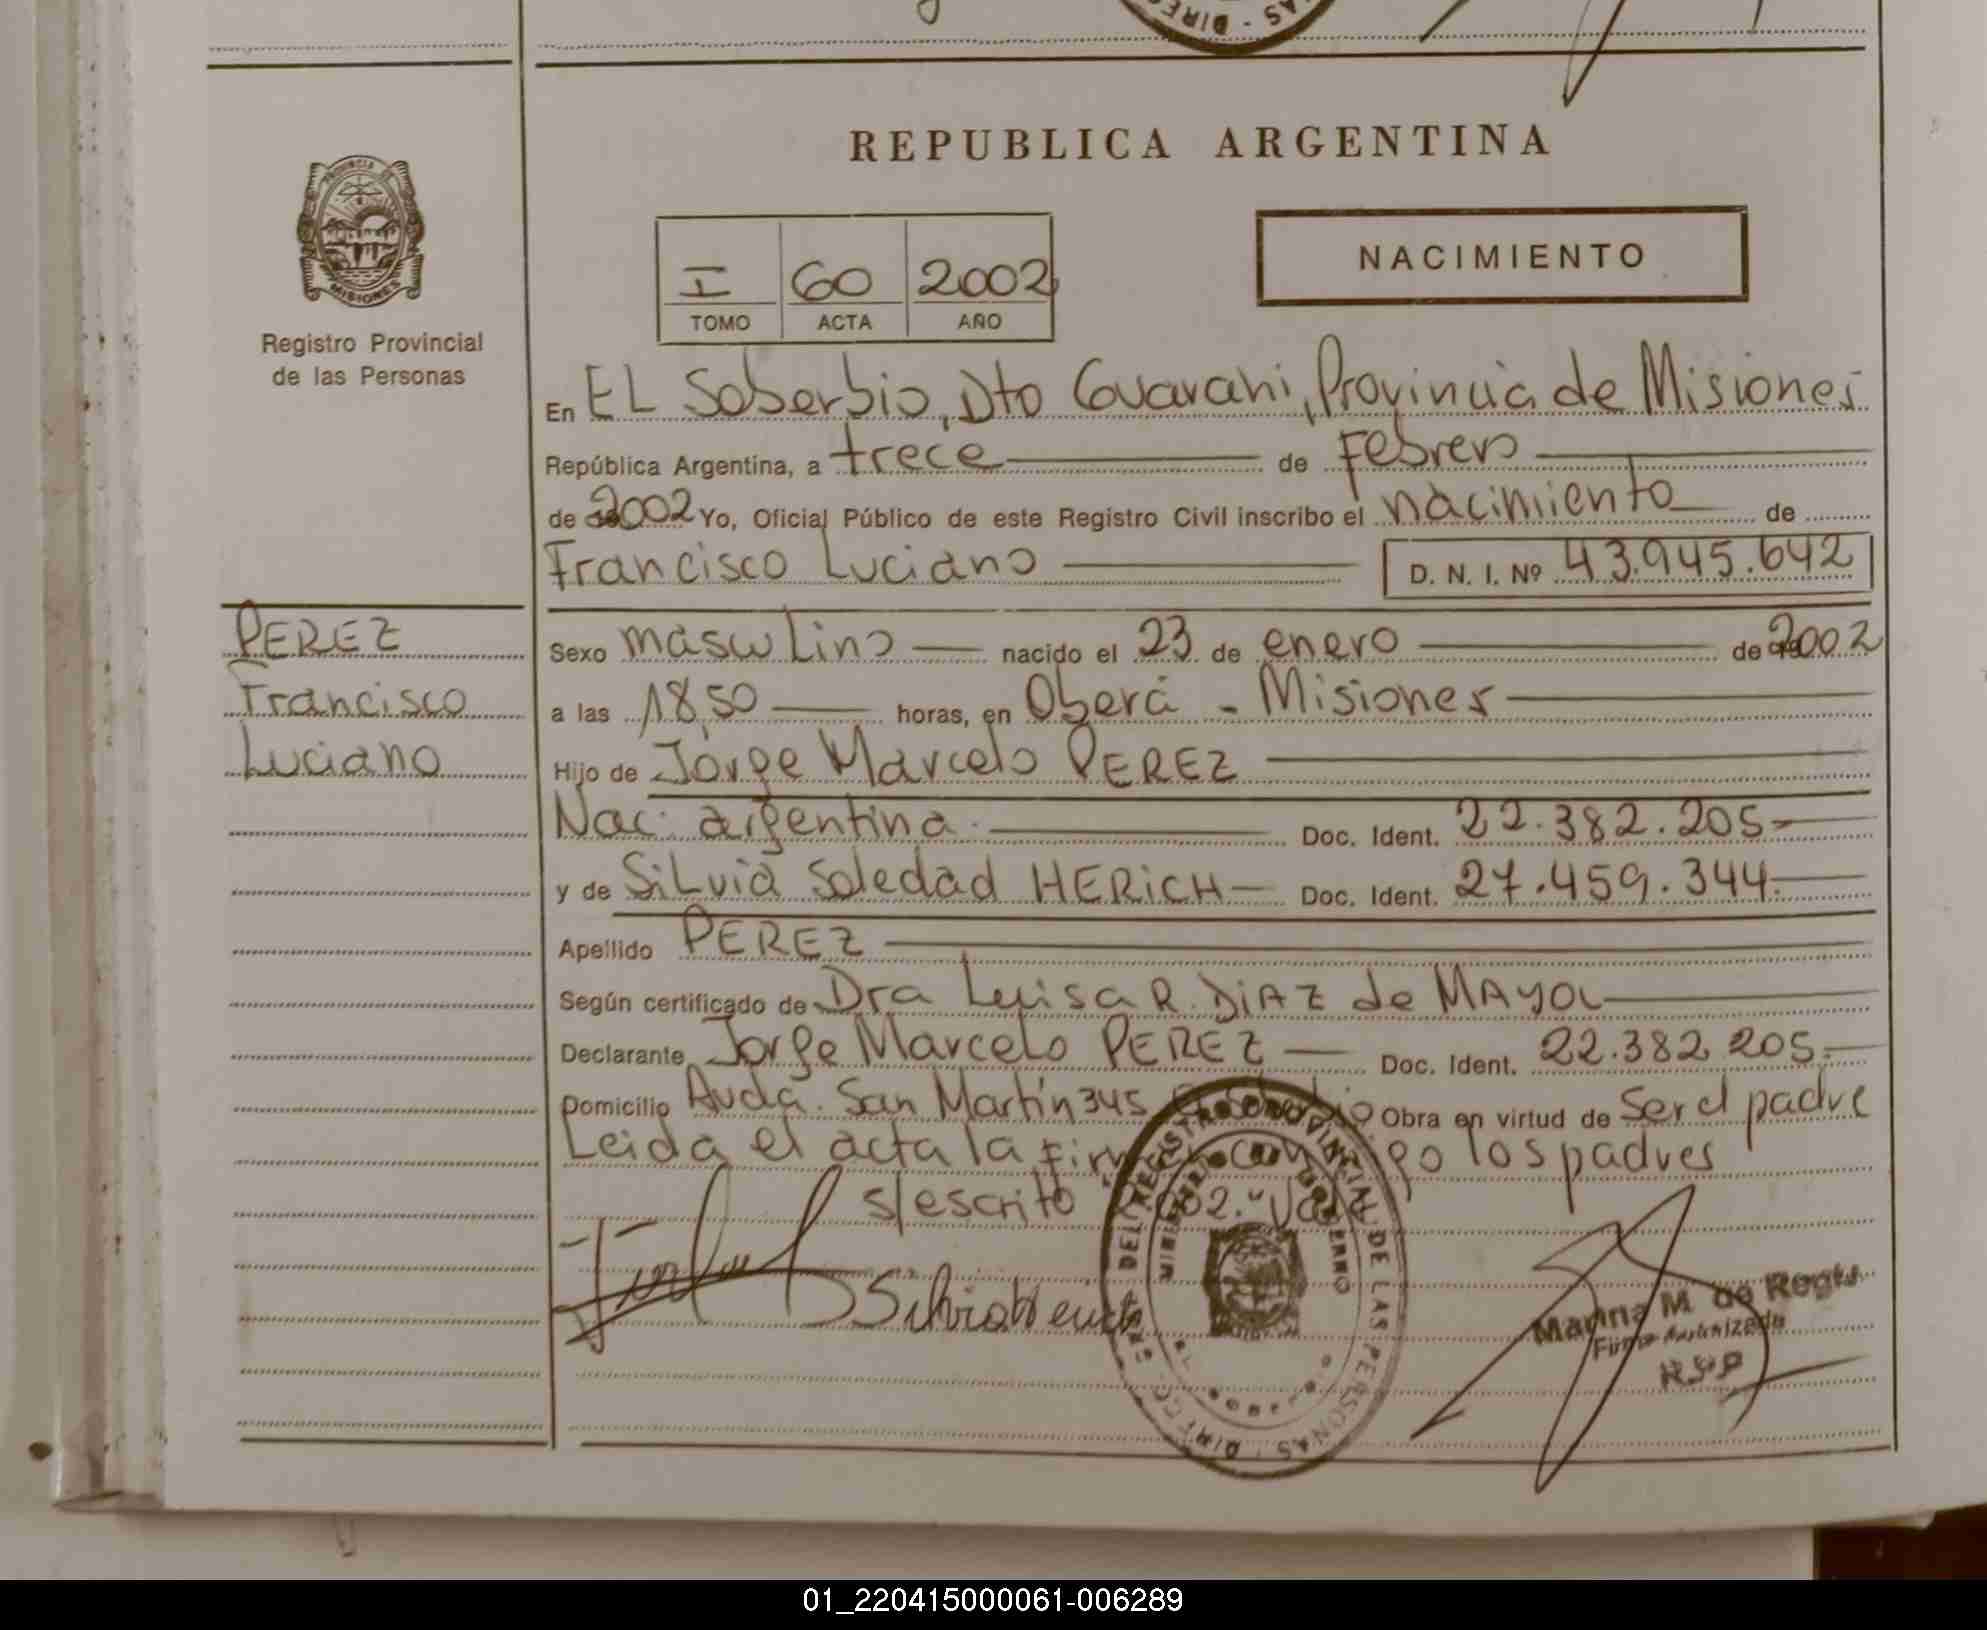 REPUBLICA ARGENTINA
PROVINCIA DE
MISIONES
Registro Provincial
de las Personas
I 60 2002
TOMO ACTA AÑO
NACIMIENTO
En EL Soberbio, Dto Guarani, Provincia de Misiones
República Argentina, a trece de Febrero
de 2002 Yo, Oficial Público de este Registro Civil inscribo el nacimiento de
Francisco Luciano D. N. I. Nº 43.945.642
PEREZ
Francisco
Luciano
Sexo masculino nacido el 23 de enero de 2002
a las 18,50 horas, en Oberá - Misiones
Hijo de Jorge Marcelo PEREZ
Nac. argentina. Doc. Ident. 22.382.205
y de SiLvia Soledad HERiCH Doc. Ident. 27.459.344.
Apellido PEREZ
Según certificado de Dra Luisa R. DiAZ de MAYOL
Declarante Jorge Marcelo PEREZ Doc. Ident. 22.382.205.
Domicilio Avda. San Martín 345 Obra en virtud de Ser el padre
Leida el acta la los padres
s/escrito
Silvia Herich
DEL REGISTRO PROVINCIAL DE LAS PERSONAS
Marina M. de
Firma Autorizada
01_220415000061-006289